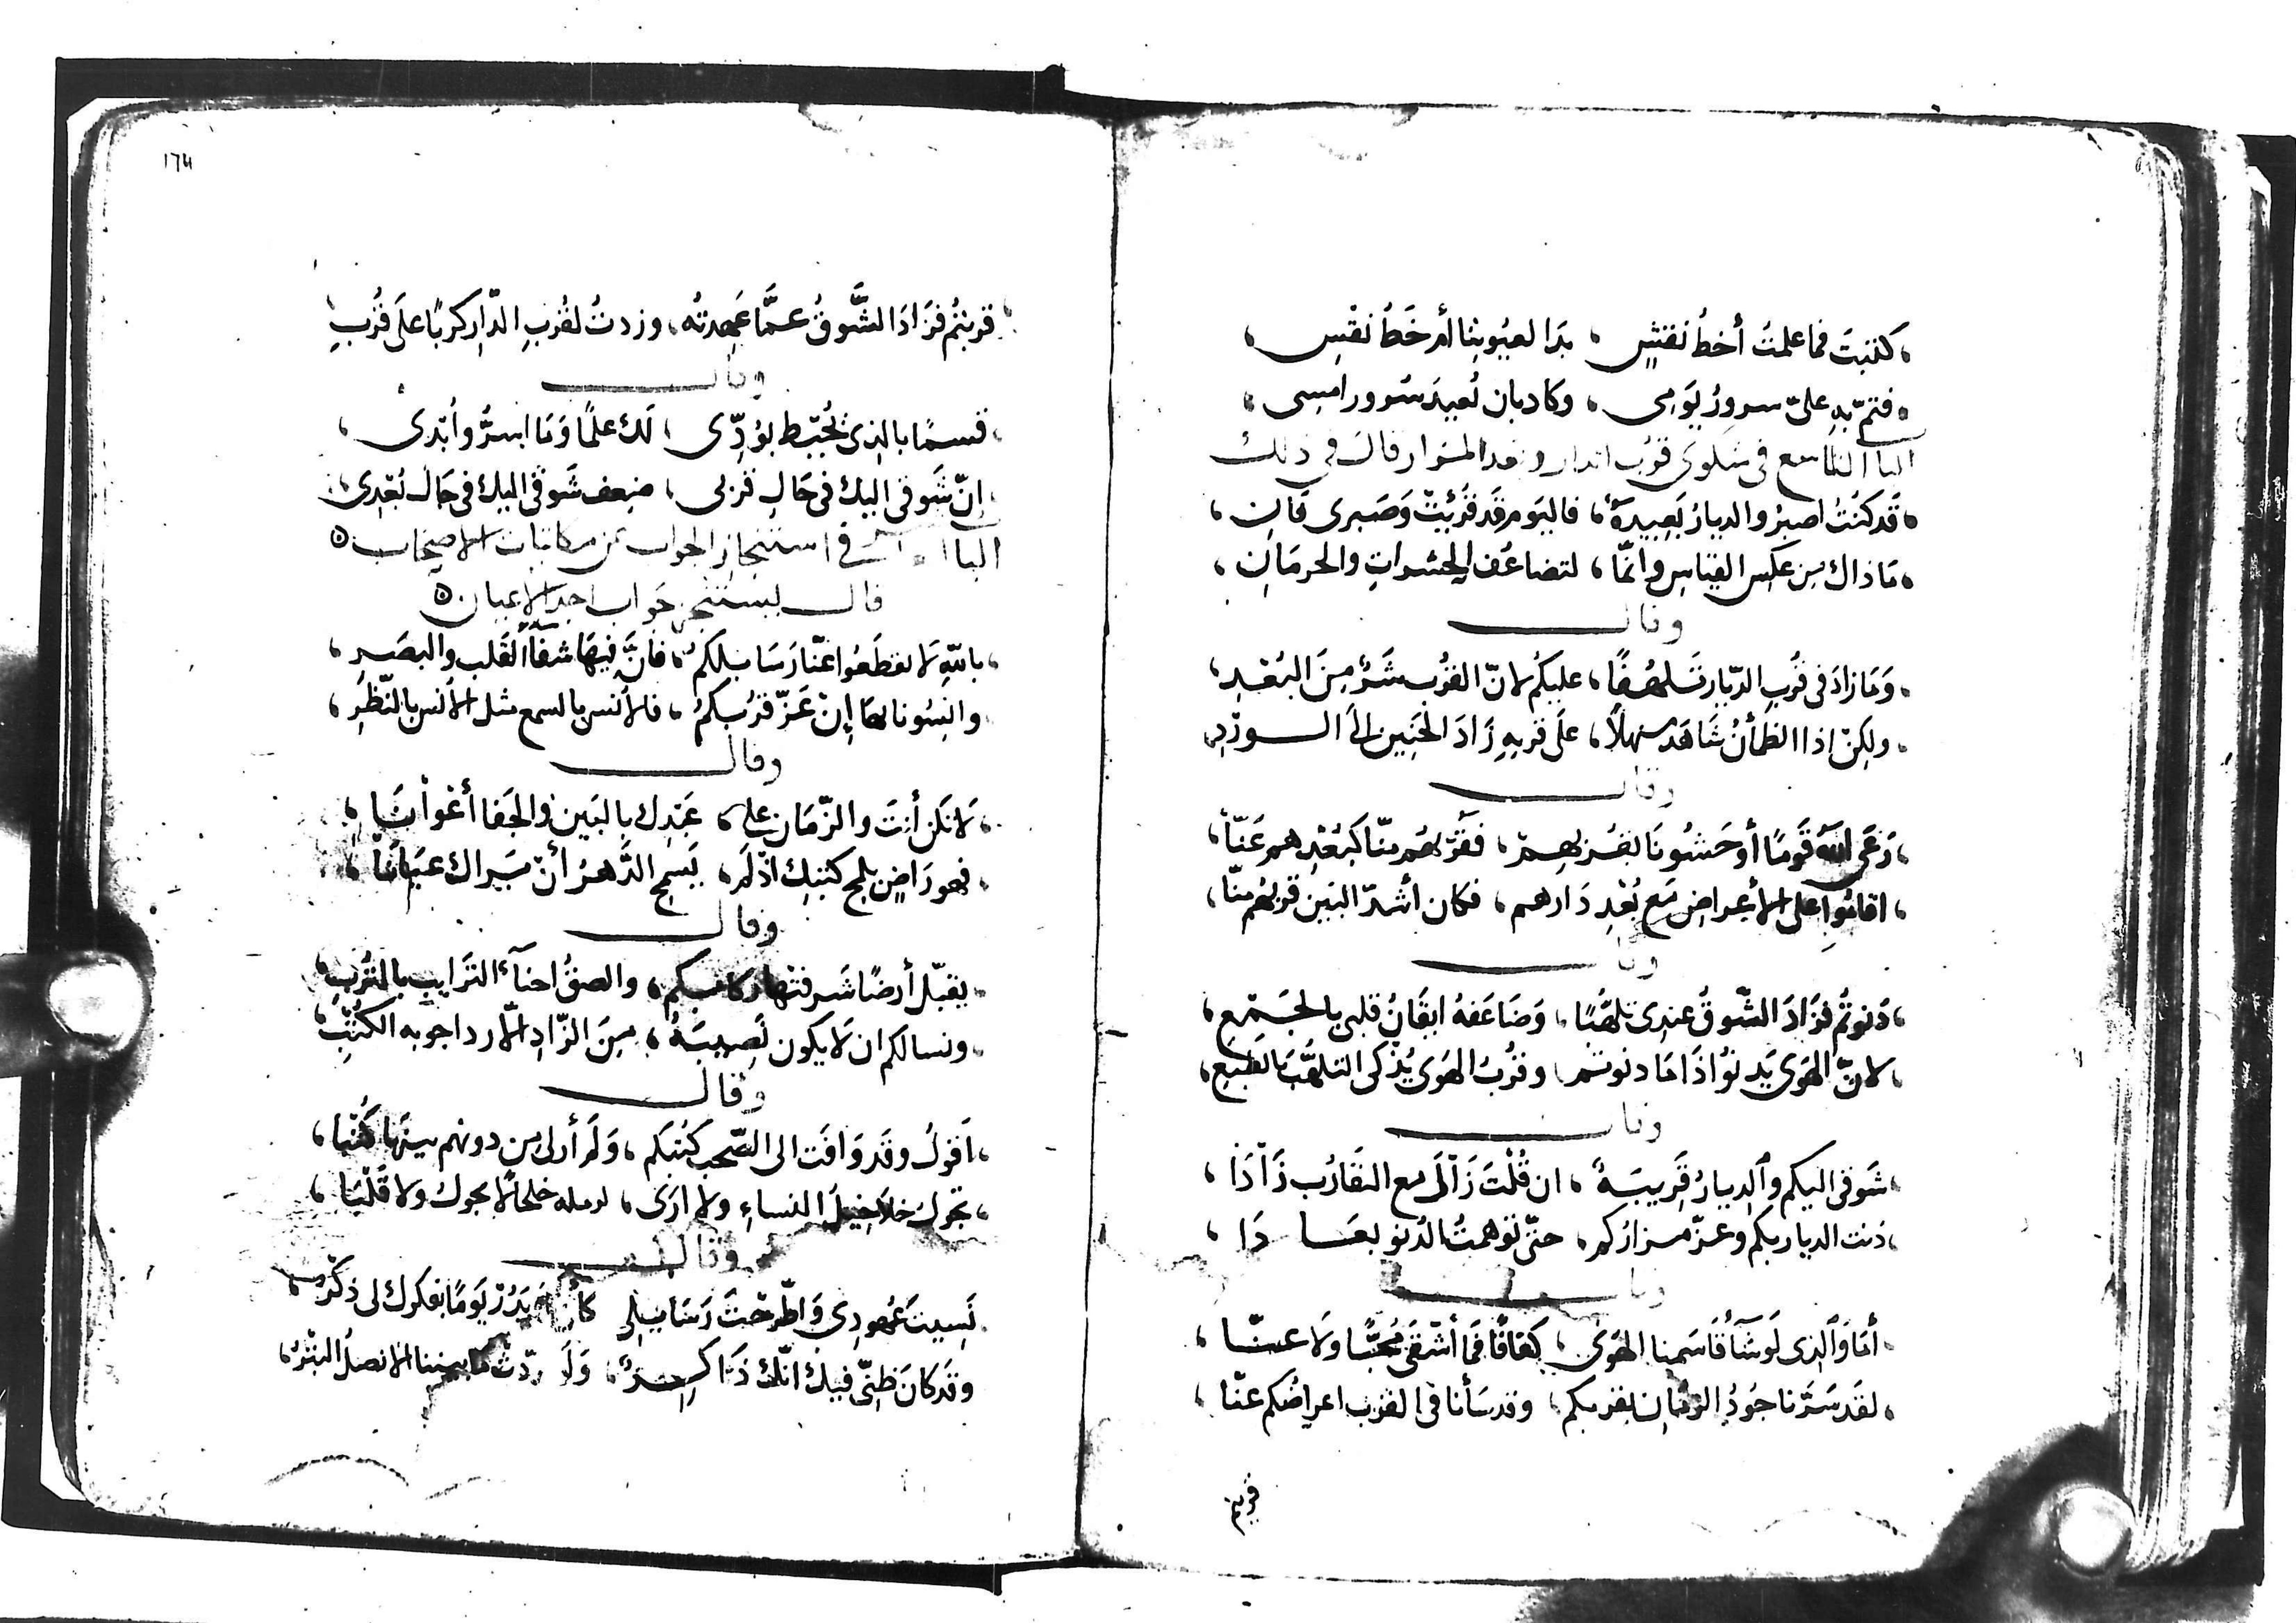 كتبتَ فما علمتُ أخطُ نقشٍ ، بدا لعيُوننا أم خَطُ نقْسِ ،
فتمّ به علىّ سرورُ يَومى ، وكاد بان نُعيدَ سُرور امسِى ،
الباب التاسع فى شكوى قرُب الدار وبُعد المزار قال فى ذلك
قَد كنتُ اصبرُ والديارُ بَعيدةٌ ، فاليَوم قَد قرُبَتْ وَصَبرى فَانِ ،
مَا ذاك من عكس القياس وانّما ، لتضاعُف الحسَراتِ والحرمَانِ ،
وقال
وَمَا زادَ فى قُربِ الدّيار تَلهُفًا ، عليكُم لانّ القُرب شَرٌ مِنَ البُعْدِ ،
ولكِن اذا الظمأنُ شَاهَدَ منهلاً ، علَى قربهِ زَادَ الحَنِين الَى الورْدِ
وقال
رَعَى اللهُ قَومًا أوحَشُونَا لقُربهِمْ ، فقُربهُم منّا كبُعْدِهم عَنّا ،
اقامُوا على الأعراض مَع بُعْدِ دَارهم ، فكان أشدّ البَين قربهُم منّا ،
وقال
دَنوتُم فزَادَ الشّوقُ عندى تلهُّبًا ، وَضَاعَفهُ ايقَانُ قلبى بالجَمْعِ ،
لانّ الهَوى يَدنوُ اذَا مَا دنوتم ، وقرُبُ الهَوى يُذكى التلهُّبَ بالطبعِ ،
وقال
شَوقى اليكم والديارُ قَرِيبَةٌ ، ان قُلْتَ زَالَ مع التقَارُب زَادَا ،
دَنت الديار بكم وعزّ مزارُكم ، حتّى توَهمتُ الدُنو بعَادَا ،
وقال
أمَا وَالذى لَو شَأَ قَاسَمنا الهَوى ، كفافًا فمَا أشْقَى مُحبًّا ولَا عنّا ،
لقَد سَرّنا جَودُ الزمَان بقربكم ، وقد سَأنا فى القرب اعراضُكم عَنّا ،
قربتم
١٦٣
قربتُم فزَادَ الشَّوقُ عمَّا عَهِدتُه ، وزدتُ لقُربِ الدّارِ كربًا علَى قُربِ
وقال
قسمًا بالذى يُحيط بوُدّى ، لَك علمًا وَمَا اسرُّ وأبْدى ،
إنّ شَوقى اليك فى حَالِ قربى ، ضِعف شَوقى اليك فى حَال بُعْدِى ،
الباب فى استنجاز الجواب عن مكاتبات الاصحاب
قال يستنجز جَواب احد الاعيان
باللهِ لَا تقطعُوا عنّا رَسَايلكم ، فانّ فيهَا شفأَ القَلب والبصَرِ ،
وانِسُونا بهَا إنْ عَزّ قرُبكُم ، فالأنس بالسمع مثل الأنس بالنّظرِ ،
وقال
لَا تكن أنتَ والزّمَان على ، عَبدك بالبَين والجَفا أعْوانَا ،
فهو رَاضٍ بلمح كتبك اذْ لَم ، يَسمح الدَّهرُ أنْ يَراك عيَانَا ،
وقال
يقبّل أرضًا شَرفتْها ركابكم ، والصقُ احنآءَ التَرايب بالتُربِ ،
ونسالكم ان لَا يكون نَصِيبَهُ ، مِنَ الزّادِ الّا رد اجوبه الكُتْبِ
وقال
أَقولُ وقَد وَافَت الى الصّحب كُتبكم ، وَلَم أرلى من دونهم بينَها كُتْبا ،
تجولُ خلَاخيلُ النساءِ ولا ارَى ، لرملة خلخَالًا يجولُ ولا قُلْبَا ،
وقال
نَسِيتَ عُهودِى وَاطّرحتَ رَسَايِلى يَدُرْ يَومًا بفكرك لى ذكْرُ ،
وقَد كانَ ظنِّى فيك انّك ذَاكِرٌ ، بيننا الانصلُ البُتْرُ ،